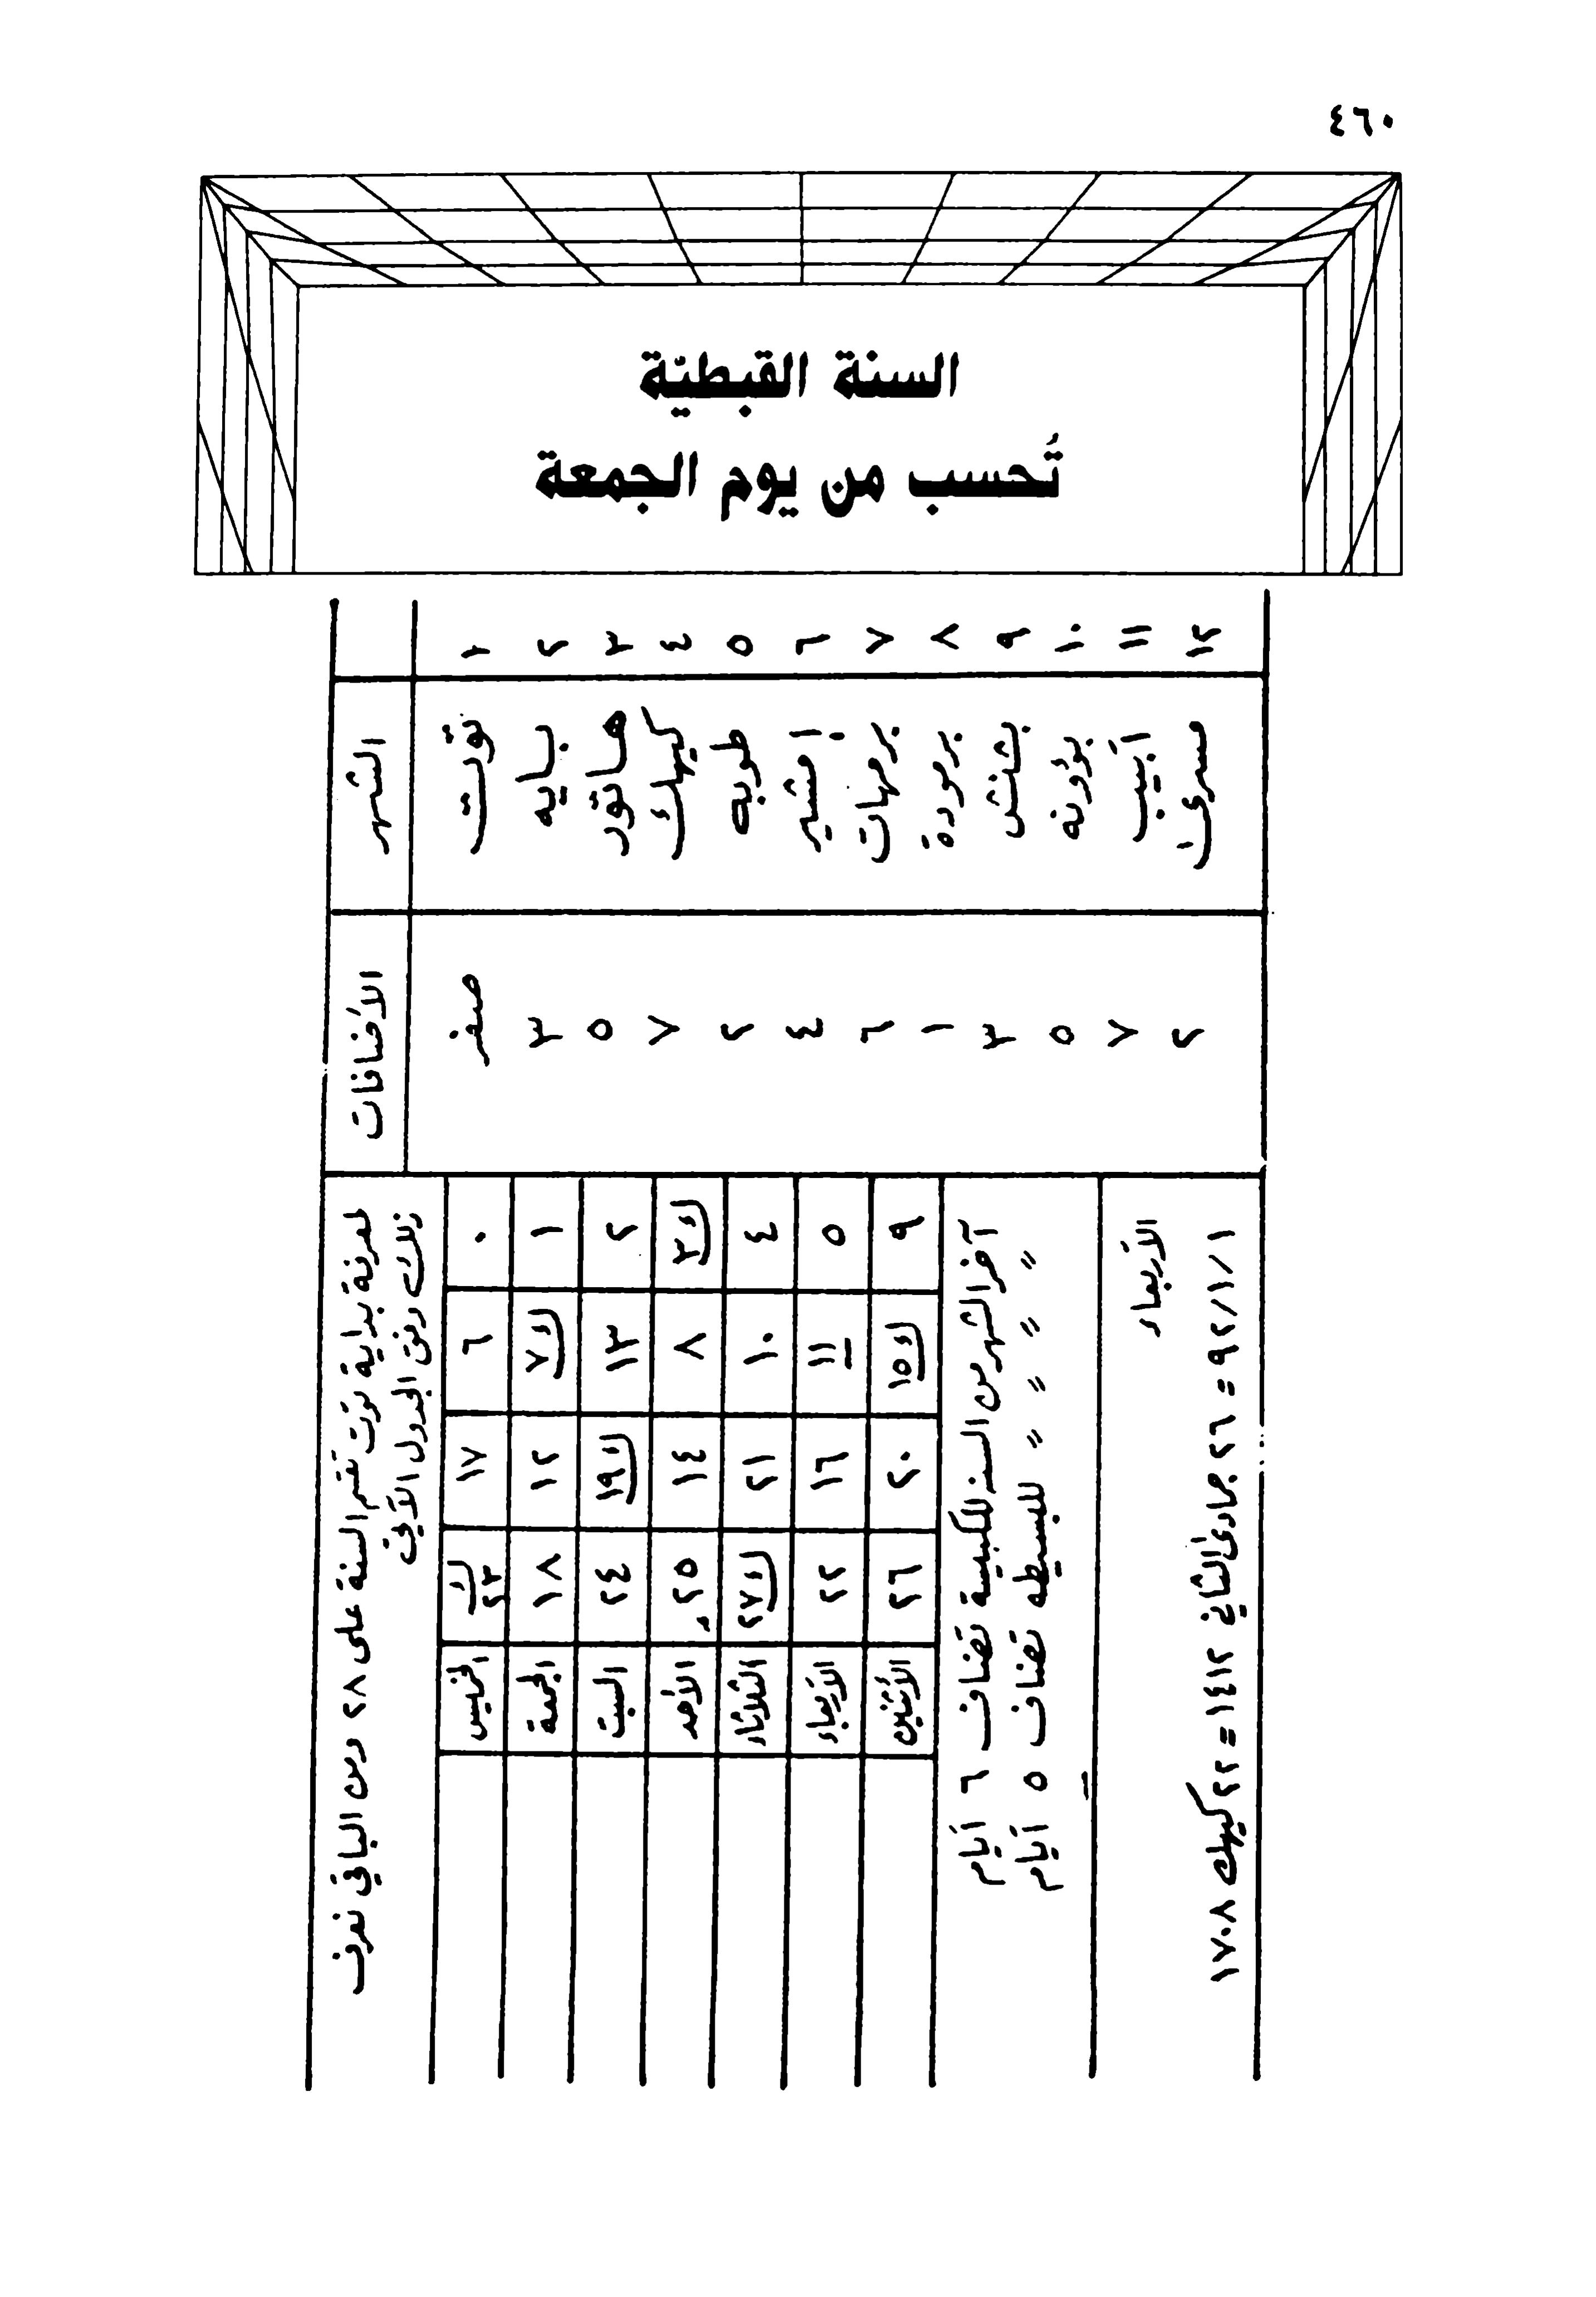 ٤٦٠
السنة القبطيّة
تُحسب من يوم الجمعة
١ ٢ ٣ ٤ ٥ ٦ ٧ ٨ ٩ ١٠ ١١ ١٢
الشهر توت بابه هاتور كيهك طوبه إمشير برمهات برمودة بشنش بؤونه أبيب مسرى
الأضافات صفر ٣ ٥ ٧ ٢ ٤ ٦ ١ ٣ ٥ ٧ ٢
لمعرفة بداية توت تقسم السنة على ٢٨ ومن الباقي نعرف
ذلك وفق الجدول الآتي
٠ ٦ ١٧ ك ٢٣ الخميس
١ ك ٧ ١٢ ١٨ الجمعة
٢ ١٣ ك ١٩ ٢٤ السبت
ك ٣ ٨ ١٤ ٢٥ الأحد
٤ ١٠ ٢١ ك ٢٧ الثلاثاء
٥ ١١ ١٦ ٢٢ الأربعاء
٩ ك ١٥ ٢٠ ٢٦ الأثنين
آخر الشهر من السنه للكبيسة تضاف ٦ أيام
〃 〃 〃 〃 للبسيطه تضاف ٥ أيام
الأربعاء
١/١/٩٢ = ٢٦ جمادى الثاني ١٤١٢ = ٢٢ كيهك ١٧٠٨